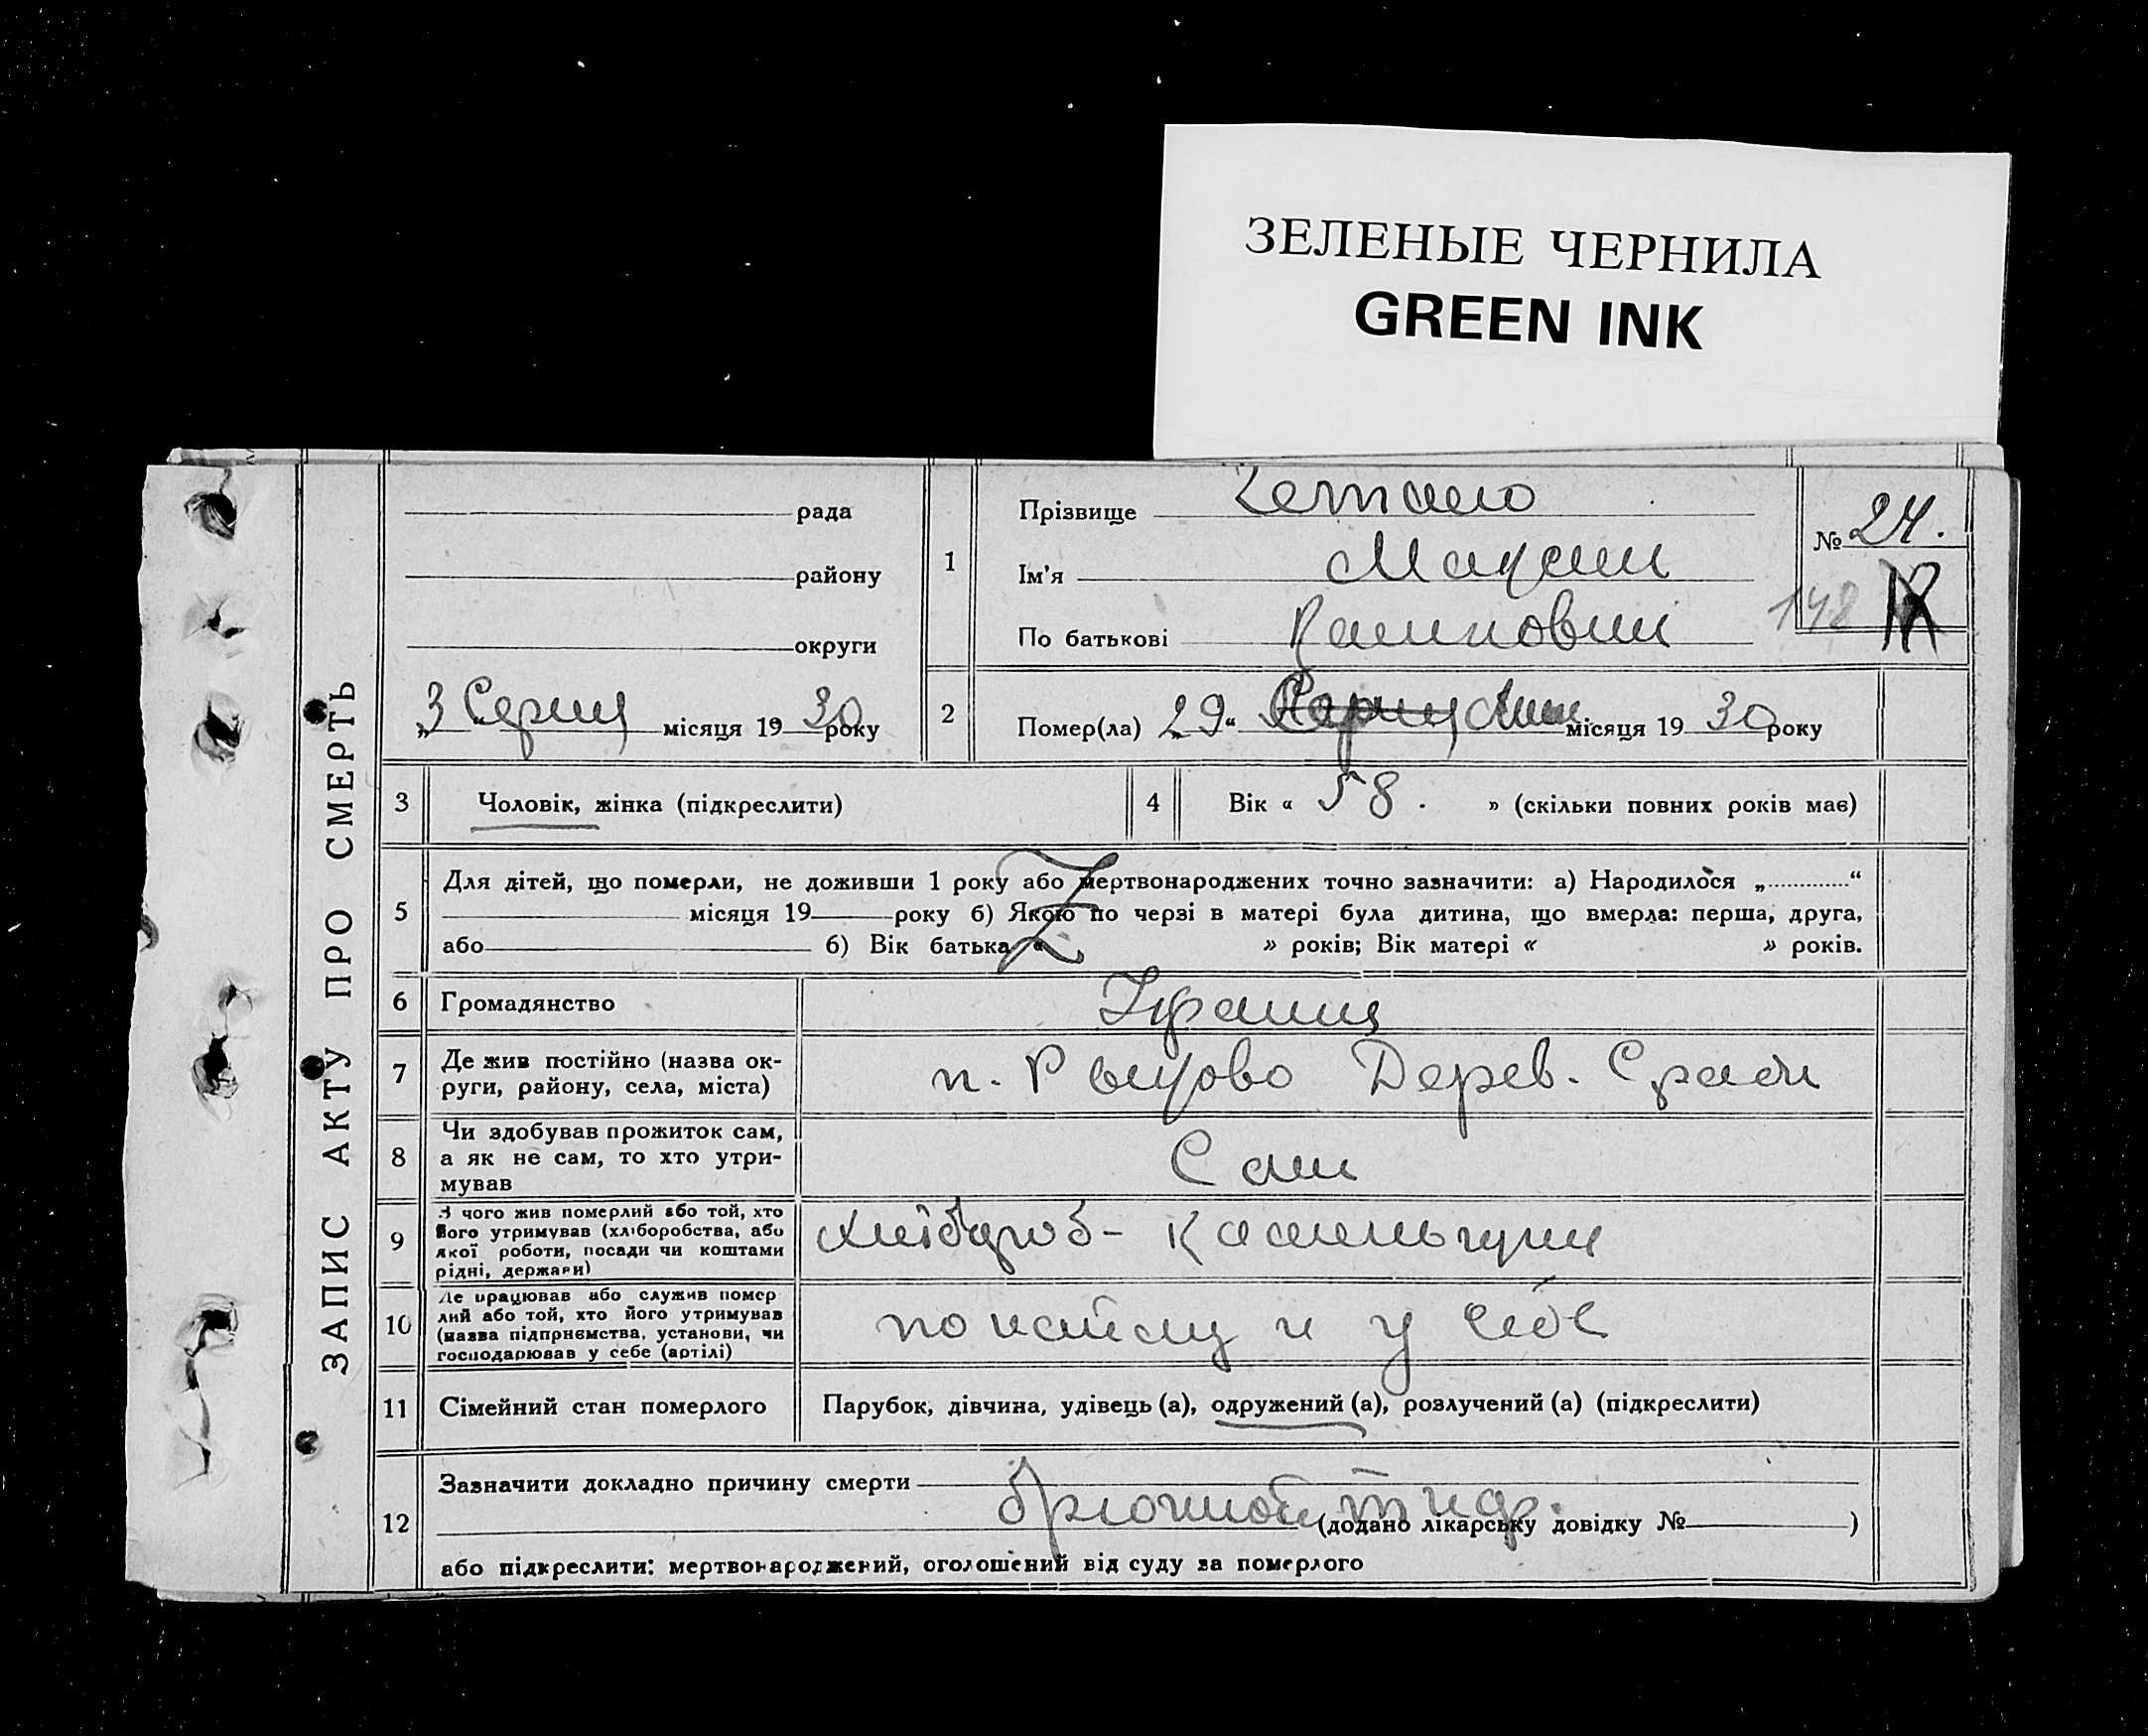 ЗЕЛЕНЫЕ ЧЕРНИЛА
GREEN INK
ЗАПИС АКТУ ПРО СМЕРТЬ
рада
району
округи
„3“ Серпня місяця 1930 року
1
Прізвище
Ім'я Максим
По батькові
№ 24.
148
2
Помер(ла) „29“ місяця 1930 року
3
Чоловік, жінка (підкреслити)
4
Вік « 58. » (скільки повних років має)
5
Для дітей, що померли, не доживши 1 року або мертвонароджених точно зазначити: а) Народилося „ “
місяця 19 року б) Якою по черзі в матері була дитина, що вмерла: перша, друга,
або б) Вік батька « » років; Вік матері « » років.
6
Громадянство
7
Де жив постійно (назва ок-
руги, району, села, міста)
п. Рыково Дерев.
8
Чи здобував прожиток сам,
а як не сам, то хто утри-
мував
Сам
9
З чого жив померлий або той, хто
його утримував (хліборобства, або
якої роботи, посади чи коштами
рідні, держави)
Хлібороб-
10
Де працював або служив помер
лий або той, хто його утримував
(назва підприємства, установи, чи
господарював у себе (артілі)
по найму и у себе
11
Сімейний стан померлого
Парубок, дівчина, удівець (а), одружений (а), розлучений (а) (підкреслити)
12
Зазначити докладно причину смерти
брюшной тиф.
(додано лікарську довідку № )
або підкреслити: мертвонароджений, оголошений від суду за померлого